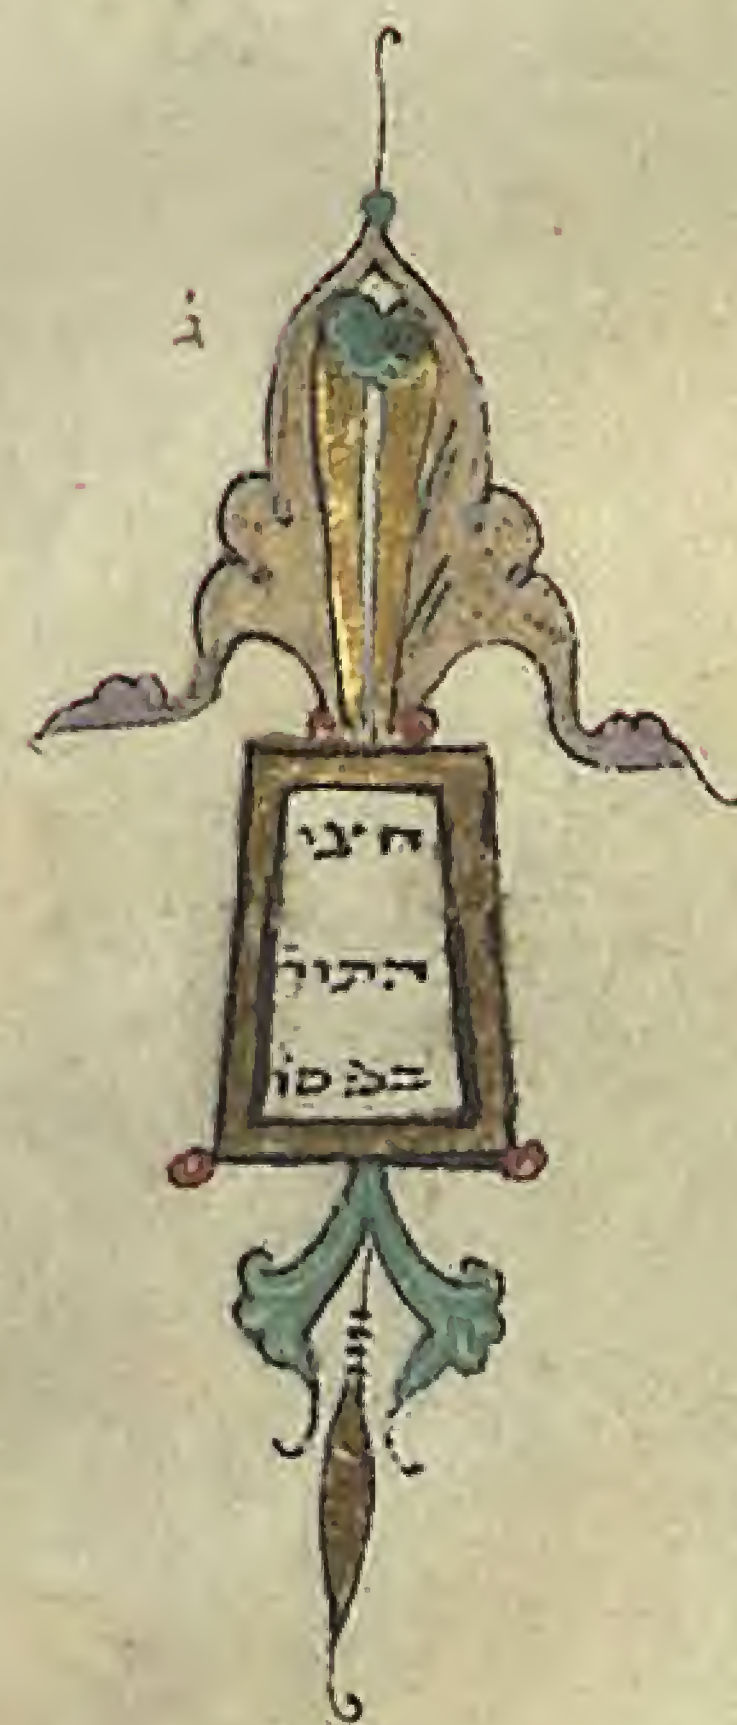 חצי
התורׄ
בפסוׄ